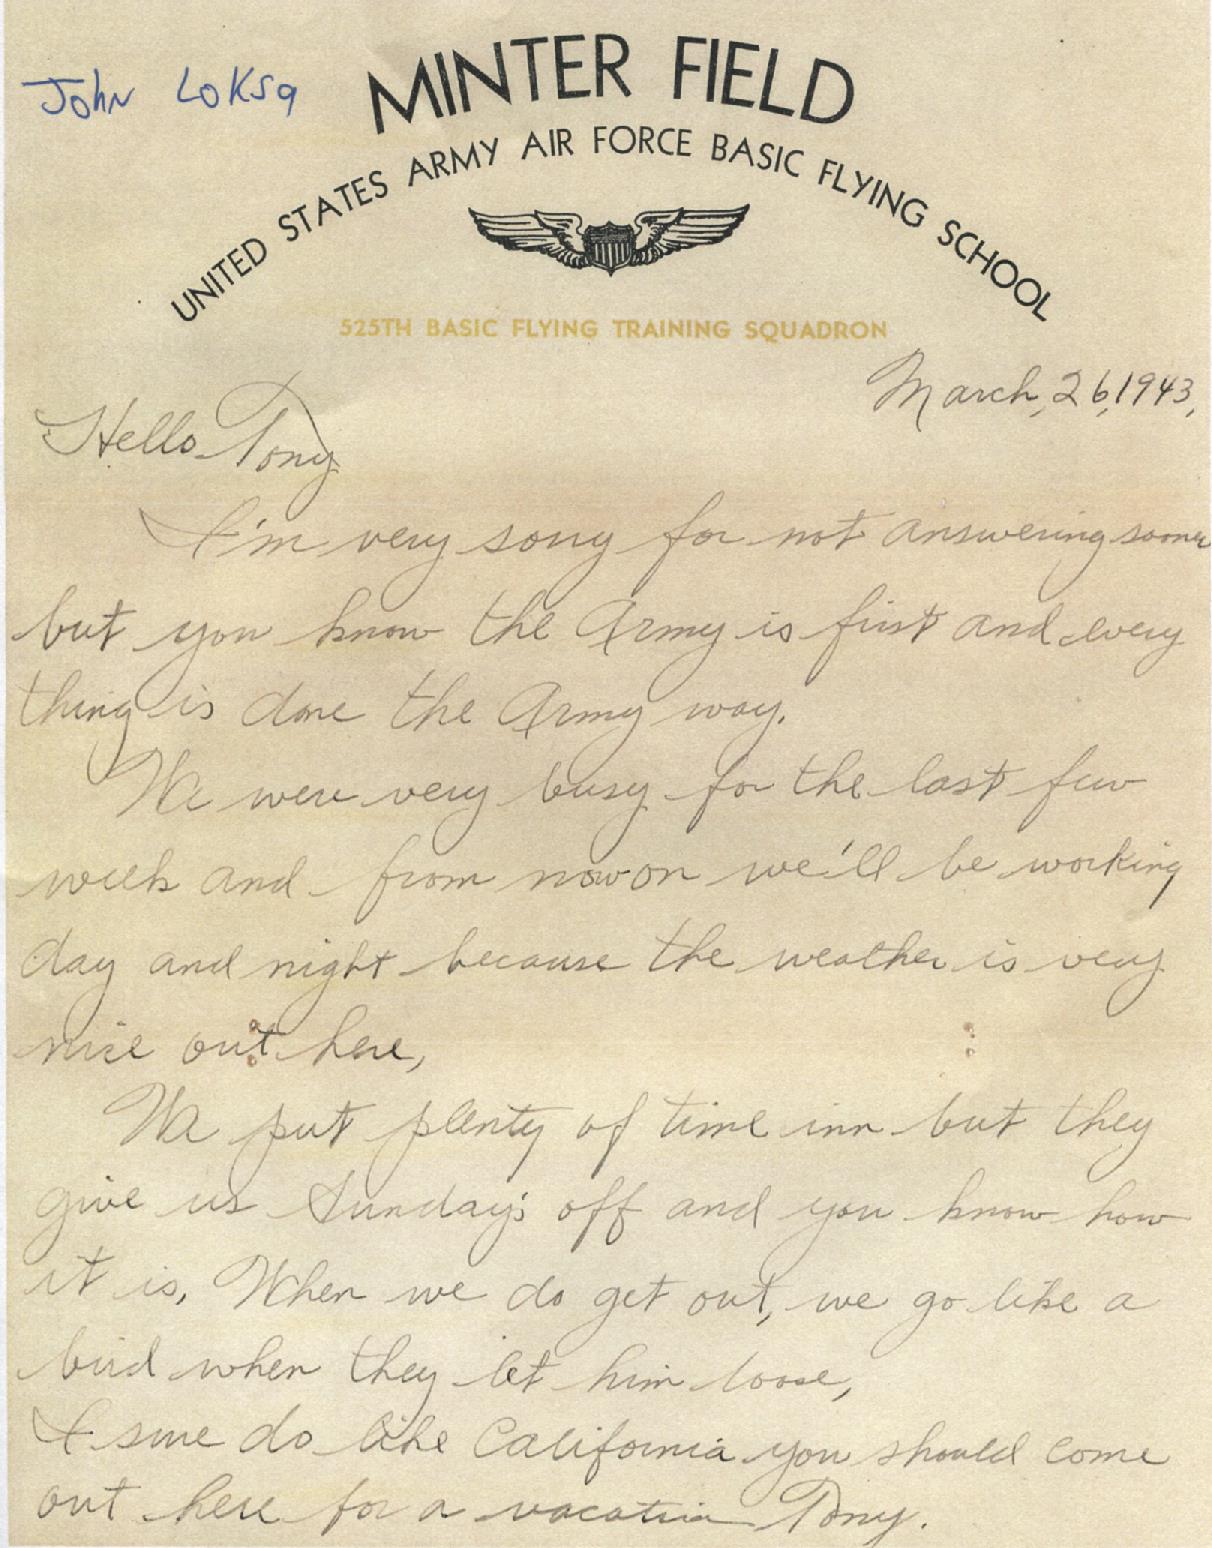 John Loksa
MINTER FIELD
UNITED STATES ARMY AIR FORCE BASIC FLYING SCHOOL
525TH BASIC FLYING TRAINING SQUADRON
March, 26, 1943,
Hello Tony
I'm very sorry for not answering sooner
but you know the Army is first and every
thing is done the Army way.
We were very busy for the last few
week and from now on we'll be working
day and night because the weather is very
nice out here,
We put plenty of time inn but they
give us Sunday's off and you know how
it is, When we do get out, we go like a
bird when they let him loose,
I sure do like California you should come
out here for a vacation Tony.